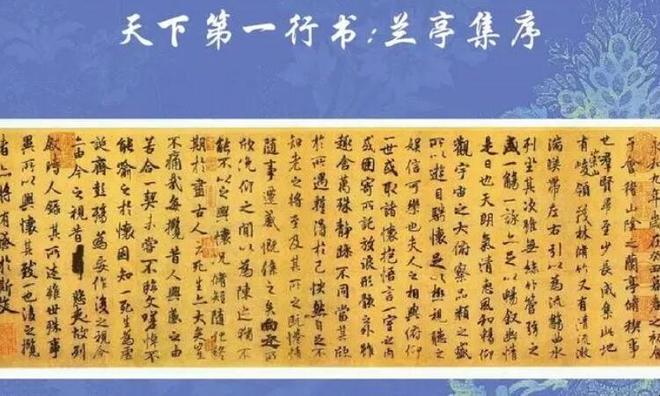 天下第一行书:兰亭集序
永和九年歲在癸丑暮春之初會
于會稽山陰之蘭亭脩禊事
也羣賢畢至少長咸集此地
有崇山峻領茂林脩竹又有清流激
湍暎帶左右引以為流觴曲水
列坐其次雖無絲竹管弦之
盛一觴一詠亦足以暢叙幽情
是日也天朗氣清惠風和暢仰
觀宇宙之大俯察品類之盛
所以遊目騁懷足以極視聽之
娛信可樂也夫人之相與俯仰
一世或取諸懷抱悟言一室之內
或因寄所託放浪形骸之外雖
趣舍萬殊靜躁不同當其欣
於所遇蹔得於己快然自足不
知老之將至及其所之既惓情
隨事遷感慨係之矣向之所
欣俛仰之間以為陳迹猶不
能不以之興懷況脩短隨化終
期於盡古人云死生亦大矣豈
不痛哉每攬昔人興感之由
若合一契未嘗不臨文嗟悼不
能喻之於懷固知一死生為虛
誕齊彭殤為妄作後之視今
亦由今之視昔悲夫故列
叙時人錄其所述雖世殊事
異所以興懷其致一也後之攬
者亦將有感於斯文